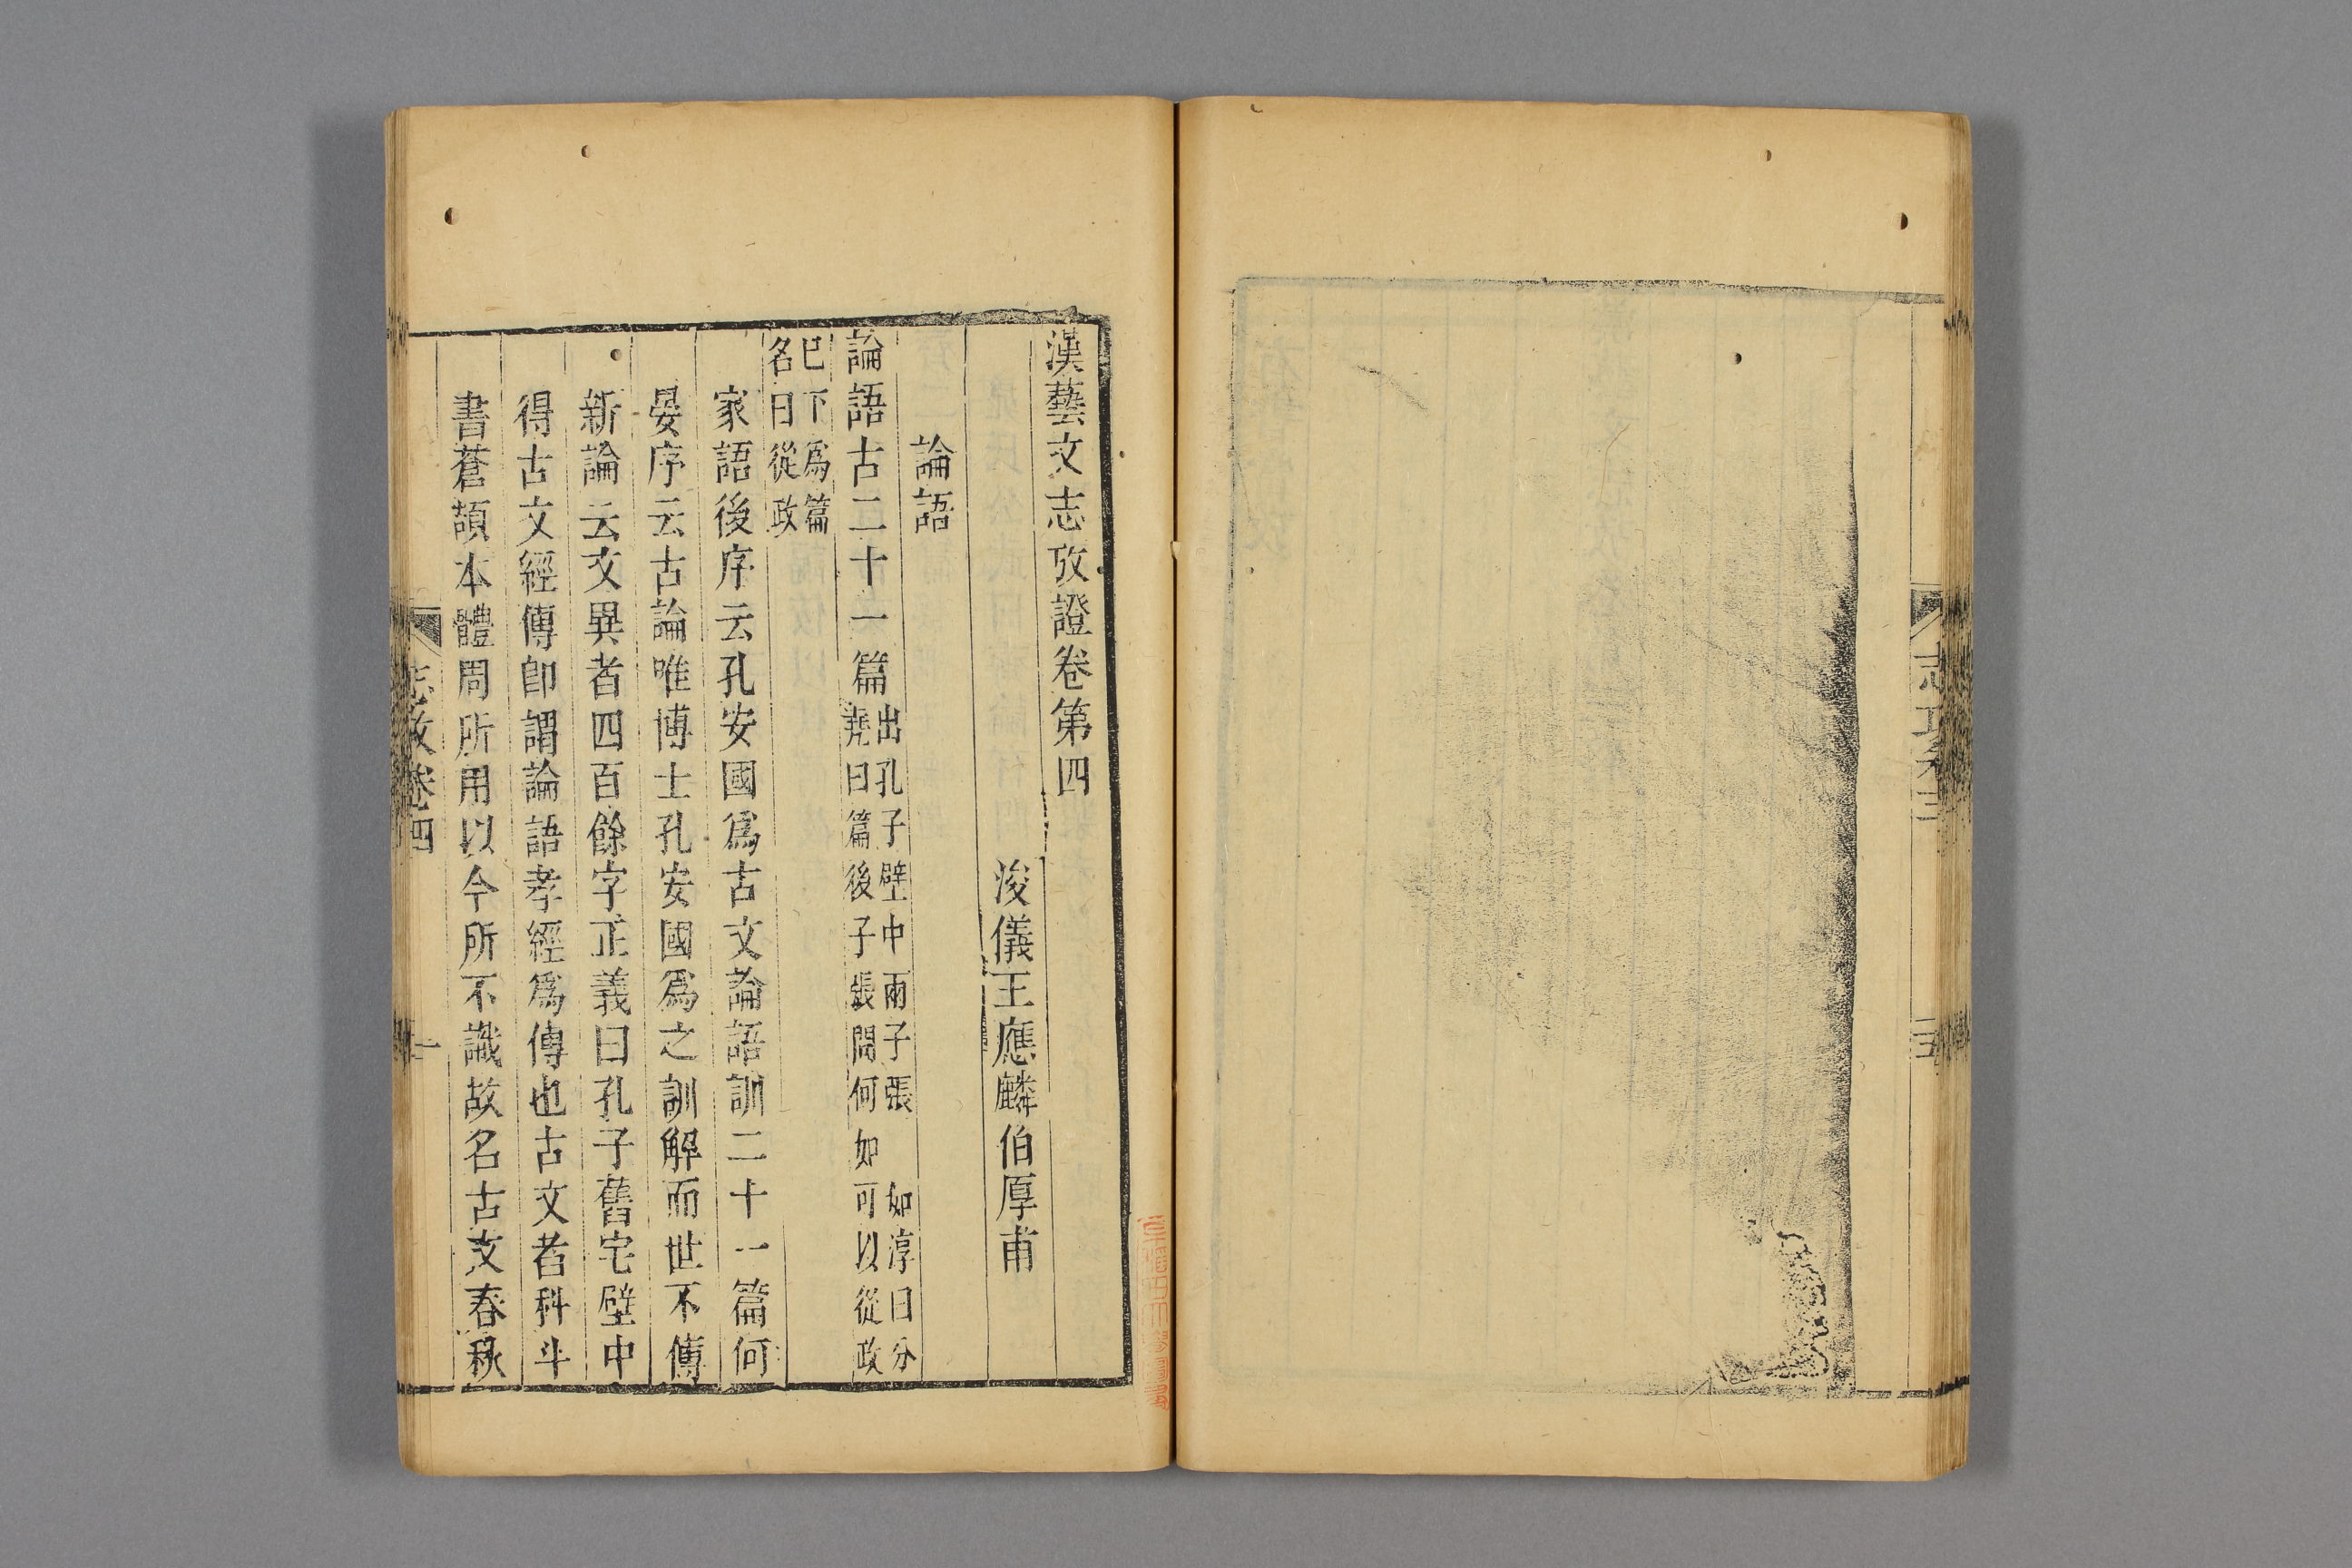 漢藝文志攷證卷第四
浚儀王應麟伯厚甫
論語
論語古二十一篇出孔子壁中兩子張 如淳曰分
堯曰篇後子張問何如可以從政
巳下爲篇
名曰從政
家語後序云孔安國爲古文論語訓二十一篇何
晏序云古論唯博士孔安國爲之訓解而世不傳
新論云文異者四百餘字正義曰孔子舊宅壁中
得古文經傳卽謂論語孝經爲傳也古文者科斗
書蒼頡本體周所用以今所不識故名古文春秋
志攷卷四
一